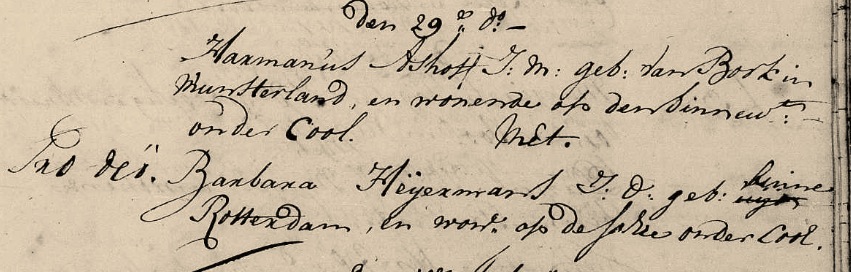 den 29.e do.
Harmanus Ashoff J: M: geb: van Bork in
Munsterland, en wonende op den binnew:
onder Cool. Met.
Pro deo. Barbara Heijermans J: d: geb: binne
Rotterdam, en won: op de onder Cool.